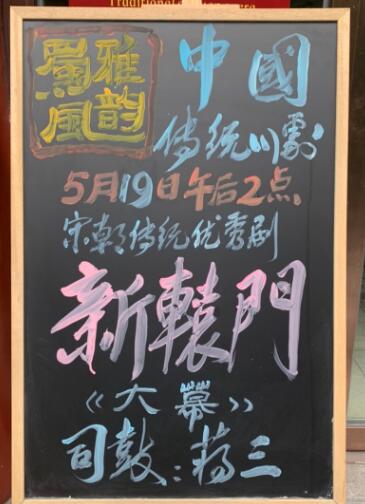 Traditional
蜀風
雅韵
中國
传统川劇
5月19日午后2点
宋朝传统优秀剧
新轅門
《大幕》
司鼓：蒋三